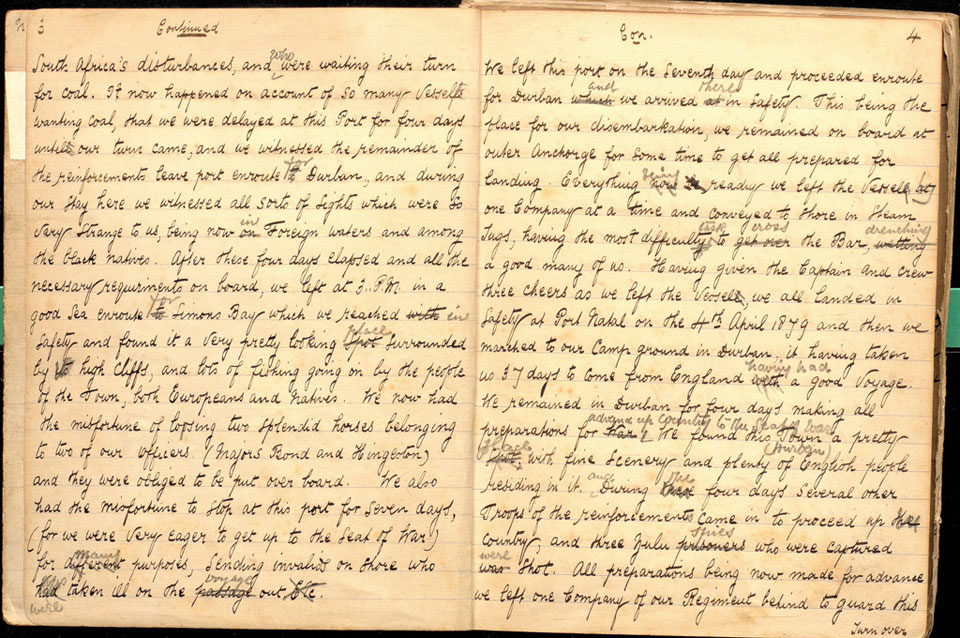 3
Continued
South Africa's disturbances, and who were waiting their turn
for coal. It now happened on account of so many Vessels
wanting Coal, that we were delayed at this Port for four days
untill our turn came, and we witnessed the remainder of
the reinforcements leave port enroute to for Durban, and during
our stay here we witnessed all sorts of sights which were so
very strange to us, being now on in Foreign waters and among
the black natives. After these four days elapsed and all the
necessary requirments on board, we left at 3..P.M. in a
good Sea enroute to for Simons Bay which we reached with in
Safety and found it a very pretty looking Spot place Surrounded
by high Cliffs, and lots of fishing going on by the people
of the Town, both Europeans and Natives. We now had
the misfortune of loosing two splendid horses belonging
to two of our Officers (Majors Rond and Hingeston)
and they were obliged to be put over board. We also
had the misfortune to Stop at this port for Seven days,
(for we were very eager to get up to the Seat of War!)
for different many purposes, Sending invalids on shore who
had were taken ill on the passage voyage out Etc.
Con.
4
We left this port on the Seventh day and proceeded enroute
for Durban which and we arrived at there in Safety. This being the
place for our disembarkation, we remained on board at
outer Anchorge for some time to get all prepared for
landing. Everything now being ready we left the Vessel, by
one Company at a time and conveyed to shore in Steam
Tugs, having the most difficulty task to get over cross the Bar, wetting drenching
a good many of us. Having given the Captain and crew
three cheers as we left the Vessel, we all landed in
Safety at Port Natal on the 4th April 1879 and then we
marched to our Camp ground in Durban, it having taken
us 37 days to come from England with having had a good Voyage.
We remained in Durban for four days making all
preparations for War! advance up Country to the Seat of War We found this Town (Durban) a pretty
place, with fine Scenery and plenty of English people
residing in it. and During the four days Several other
Troops of the reinforcements Came in to proceed up the
Country, and three Zulu prisoners spies who were captured
was were Shot. All preparations being now made for advance
we left one Company of our Regiment behind to guard this
Turn over